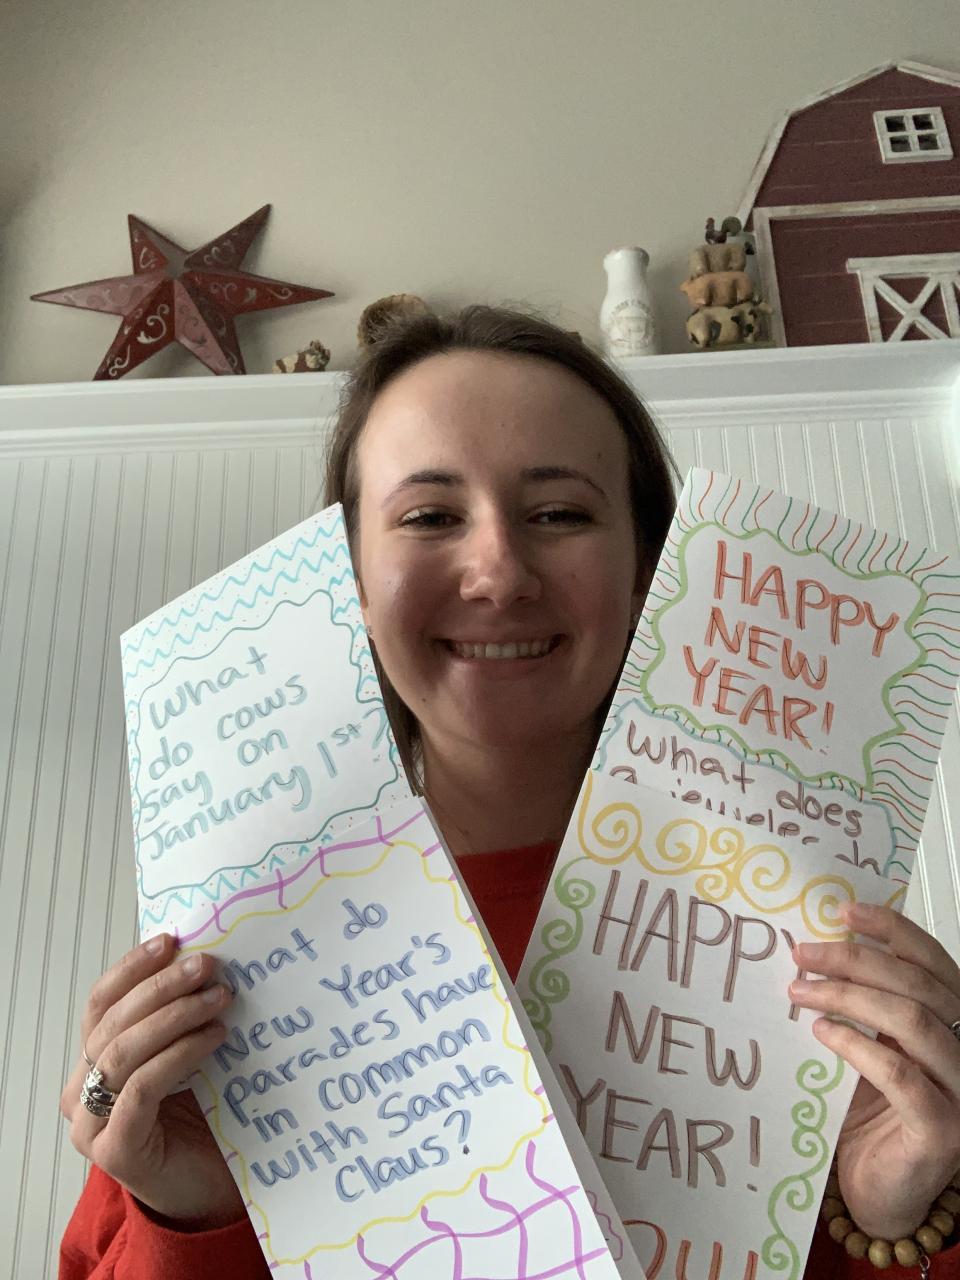 What
do cows
say on
January 1st?
What do
New Year's
parades have
in common
with Santa
Claus?
HAPPY
NEW
YEAR!
What does
a jeweler do
HAPPY
NEW
YEAR!